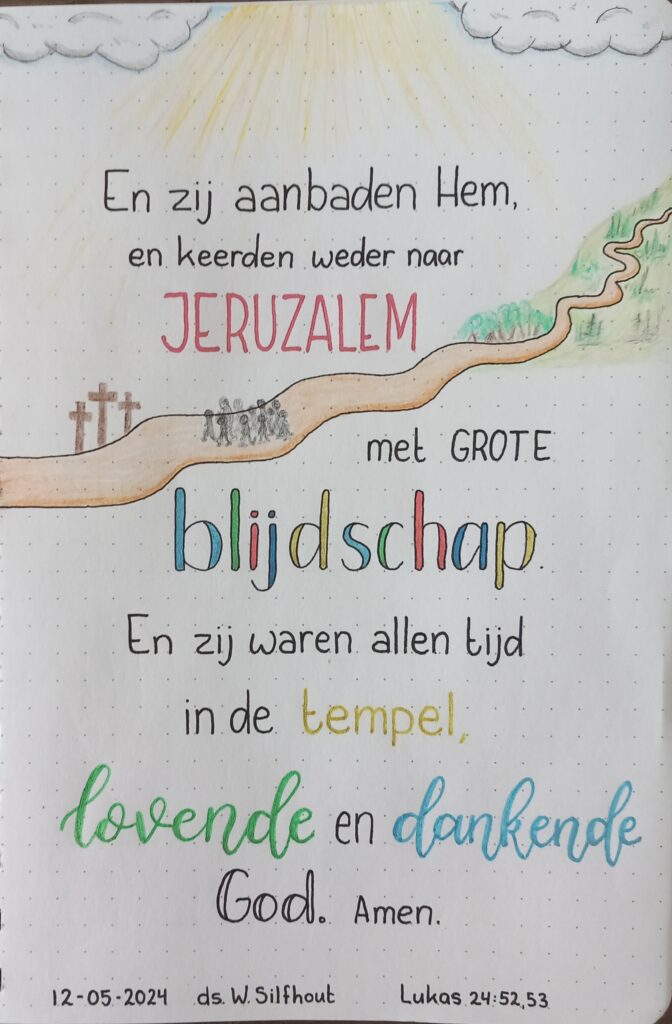 En zij aanbaden Hem,
en keerden weder naar
JERUZALEM
met GROTE
blijdschap.
En zij waren allen tijd
in de tempel,
lovende en dankende
God. Amen.
12-05-2024 ds. W. Silfhout Lukas 24:52,53